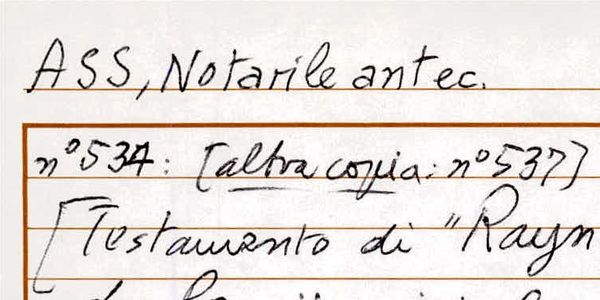 ASS, Notarile antec.
n° 534: [altra copia: n° 537]
[Testamento di "Rayn